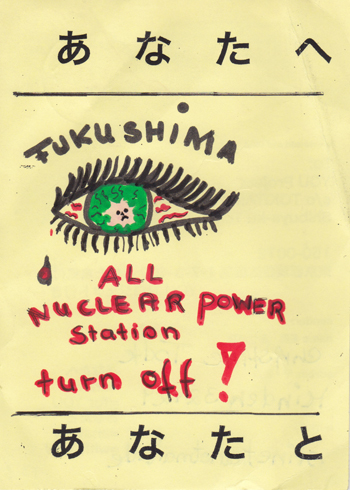 あなたへ
FUKUSHiMA
ALL
NUCLEAR POWER
Station
turn off !
あなたと